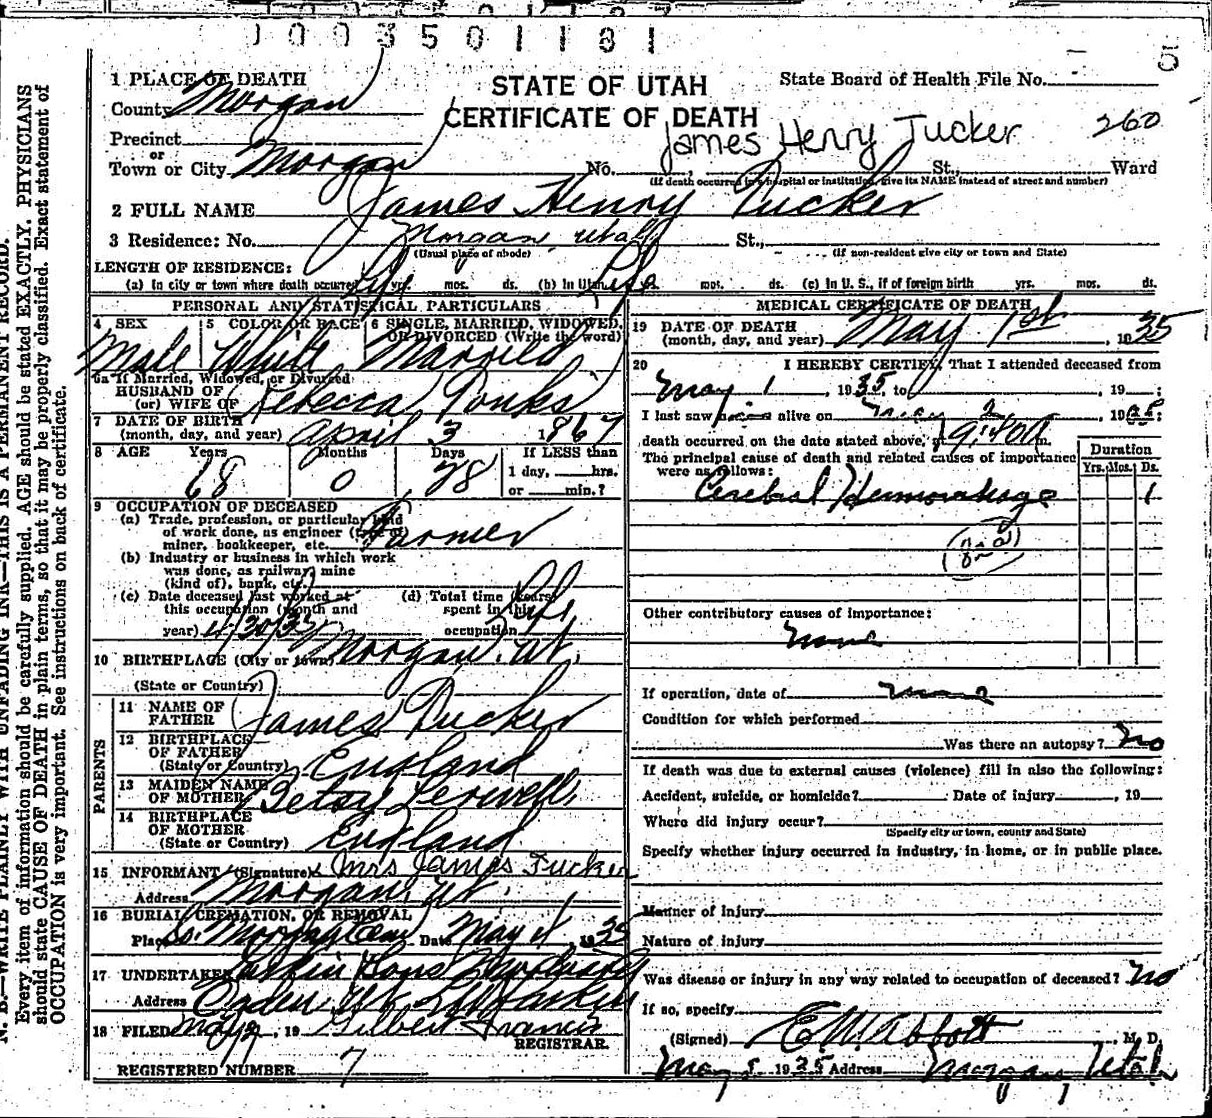 1003501181
5
1 PLACE OF DEATH
STATE OF UTAH
CERTIFICATE OF DEATH
State Board of Health File No.
County Morgan
James Henry Tucker 260
Precinct
or
Town or City Morgan No. St., Ward
(If death occurred in a hospital or institution, give its NAME instead of street and number)
2 FULL NAME James Henry Tucker
3 Residence: No. Morgan, Utah St.,
(Usual place of abode) (If non-resident give city or town and State)
LENGTH OF RESIDENCE:
(a) In city or town where death occurred Life yrs. mos. ds. (b) In Utah Life mos. ds. (c) In U. S., if of foreign birth yrs. mos. ds.
PERSONAL AND STATISTICAL PARTICULARS
4 SEX 5 COLOR OR RACE 6 SINGLE, MARRIED, WIDOWED, OR DIVORCED (Write the word)
Male White Married
6a If Married, Widowed, or Divorced
HUSBAND OF
(or) WIFE OF Rebecca Tonks
7 DATE OF BIRTH
(month, day, and year) April 3 1867
8 AGE Years Months Days If LESS than
1 day, hrs.
or min.?
68 0 28
9 OCCUPATION OF DECEASED
(a) Trade, profession, or particular kind
of work done, as engineer (type of)
miner, bookkeeper, etc. Farmer
(b) Industry or business in which work
was done, as railway, mine
(kind of), bank, etc.
(c) Date deceased last worked at
this occupation (month and
year) 4/30/35
(d) Total time (years)
spent in this
occupation Life
10 BIRTHPLACE (City or town) Morgan, Ut.
(State or Country)
PARENTS
11 NAME OF
FATHER James Tucker
12 BIRTHPLACE
OF FATHER
(State or Country) England
13 MAIDEN NAME
OF MOTHER Betsy
14 BIRTHPLACE
OF MOTHER
(State or Country) England
15 INFORMANT (Signature) x Mrs James Tucker
Address Morgan, Ut.
16 BURIAL, CREMATION, OR REMOVAL
Place So. Morgan Cem Date May 4 1935
17 UNDERTAKER Larkin Sons
Address Ogden Ut
18 FILED May 19 Gilbert Francis
REGISTRAR.
REGISTERED NUMBER 7
MEDICAL CERTIFICATE OF DEATH
19 DATE OF DEATH
(month, day, and year) May 1st, 1935
20 I HEREBY CERTIFY, That I attended deceased from
May 1, 1935, to , 19 :
I last saw alive on 19 35:
death occurred on the date stated above, at m.
The principal cause of death and related causes of importance
were as follows:
Duration
Yrs. Mos. Ds.
Cerebral Hemorrahage 1
Other contributory causes of importance:
none
If operation, date of none
Condition for which performed
Was there an autopsy? no
If death was due to external causes (violence) fill in also the following:
Accident, suicide, or homicide? Date of injury , 19
Where did injury occur?
(Specify city or town, county and State)
Specify whether injury occurred in industry, in home, or in public place.
Manner of injury
Nature of injury
Was disease or injury in any way related to occupation of deceased? no
If so, specify
(Signed) E. W. Abbott , M. D.
May 1935 Address Morgan Utah
N. B.—WRITE PLAINLY WITH UNFADING INK—THIS IS A PERMANENT RECORD.
Every item of information should be carefully supplied. AGE should be stated EXACTLY. PHYSICIANS
should state CAUSE OF DEATH in plain terms, so that it may be properly classified. Exact statement of
OCCUPATION is very important. See instructions on back of certificate.